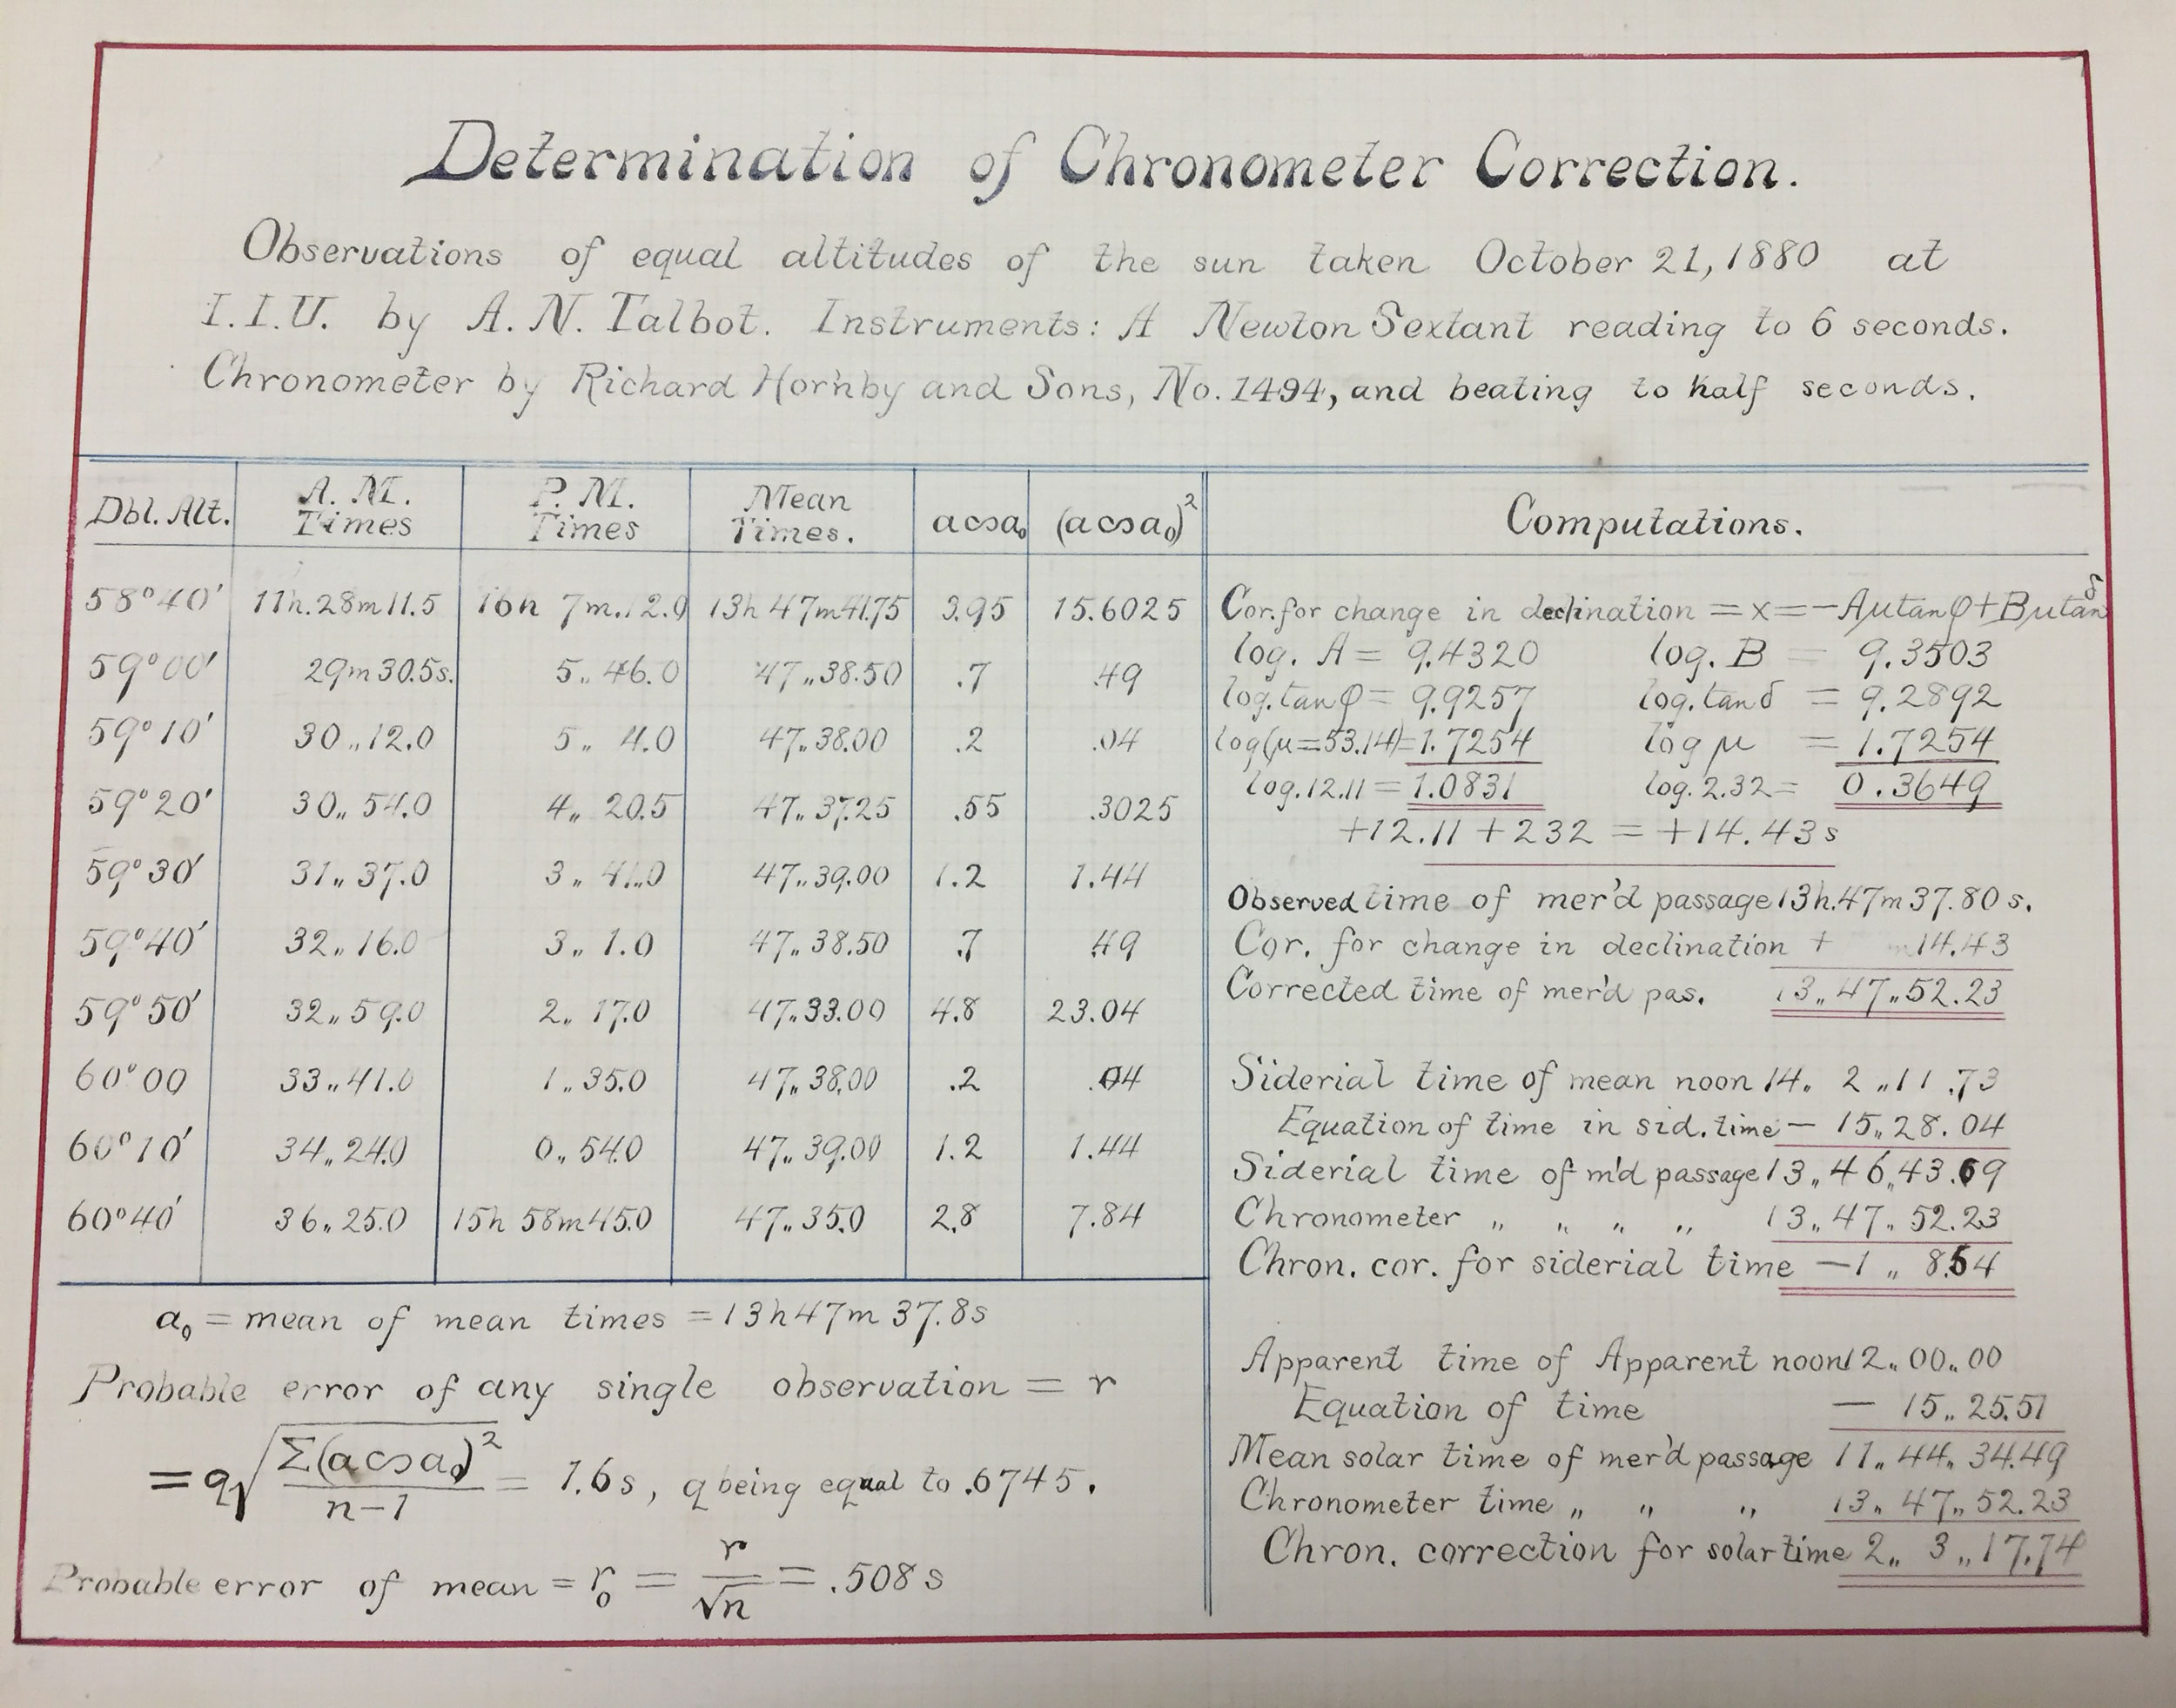 Determination of Chronometer Correction.
Observations of equal altitudes of the sun taken October 21, 1880 at
I.I.U. by A. N. Talbot. Instruments: A Newton Sextant reading to 6 seconds.
Chronometer by Richard Hornby and Sons, No. 1494, and beating to half seconds.
Dbl. Alt. A. M. Times P. M. Times Mean Times. a∽a₀ (a∽a₀)²
58°40' 11h.28m11.5 16h 7m.12.0 13h 47m41.75 3.95 15.6025
59°00' 29m30.5s. 5„ 46.0 47„38.50 .7 .49
59°10' 30„12.0 5„ 4.0 47„38.00 .2 .04
59°20' 30„ 54.0 4„ 20.5 47„37.25 .55 .3025
59°30' 31„ 37.0 3„ 41.0 47„39.00 1.2 1.44
59°40' 32„16.0 3„ 1.0 47„38.50 .7 .49
59°50' 32„59.0 2„ 17.0 47„33.00 4.8 23.04
60°00 33„41.0 1„35.0 47„38.00 .2 .04
60°10' 34„24.0 0„54.0 47„39.00 1.2 1.44
60°40' 36„25.0 15h 58m45.0 47„35.0 2.8 7.84
a₀ = mean of mean times = 13h47m 37.8s
Probable error of any single observation = r
= q√Σ(a∽a₀)²/n-1 = 1.6s, q being equal to .6745.
Probable error of mean = r₀ = r/√n = .508s
Computations.
Cor. for change in declination = x = -Aμtanφ+Bμtanδ
log. A = 9.4320 log. B = 9.3503
log. tanφ = 9.9257 log. tanδ = 9.2892
log(μ=53.14)=1.7254 log μ = 1.7254
log. 12.11 = 1.0831 log. 2.32 = 0.3649
+12.11 + 232 = +14.43s
Observed time of mer'd passage 13h.47m37.80s.
Cor. for change in declination + 14.43
Corrected time of mer'd pas. 13„47„52.23
Siderial time of mean noon 14„ 2„11.73
Equation of time in sid. time - 15„28.04
Siderial time of m'd passage 13„46„43.69
Chronometer „ „ „ „ 13„47„52.23
Chron. cor. for siderial time -1„ 8.54
Apparent time of Apparent noon 12„00„00
Equation of time - 15„25.51
Mean solar time of mer'd passage 11„44„34.49
Chronometer time „ „ „ 13„47„52.23
Chron. correction for solar time 2„ 3„17.74